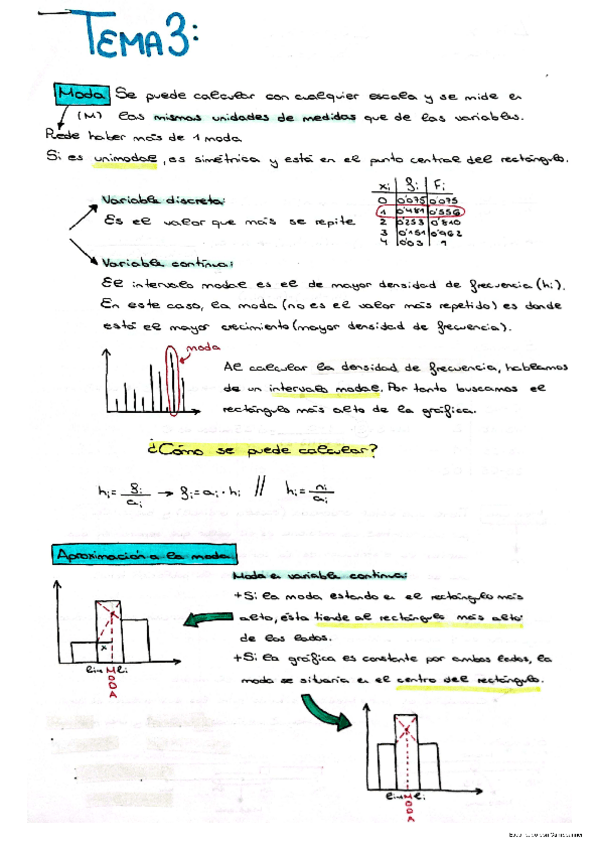 TEMA 3:
Moda Se puede calcular con cualquier escala y se mide en
(M) las mismas unidades de medidas que de las variables.
Puede haber más de 1 moda
Si es unimodal, es simétrica y está en el punto central del rectángulo.
Variable discreta:
Es el valor que más se repite
xi fi Fi
0 0'075 0'075
1 0'481 0'556
2 0'253 0'810
3 0'151 0'962
4 0'03 1
Variable continua:
El intervalo modal es el de mayor densidad de frecuencia (hi).
En este caso, la moda (no es el valor más repetido) es donde
está el mayor crecimiento (mayor densidad de frecuencia).
moda
Al calcular la densidad de frecuencia, hablamos
de un intervalo modal. Por tanto buscamos el
rectángulo más alto de la gráfica.
¿Cómo se puede calcular?
hi = fi/ai → fi = ai · hi // hi = ni/ai
Aproximación a la moda
Moda en variable continua:
+ Si la moda estando en el rectángulo más
alto, ésta tiende al rectángulo más alto
de los lados.
+ Si la gráfica es constante por ambos lados, la
moda se situaría en el centro del rectángulo.
x
MODA
MODA